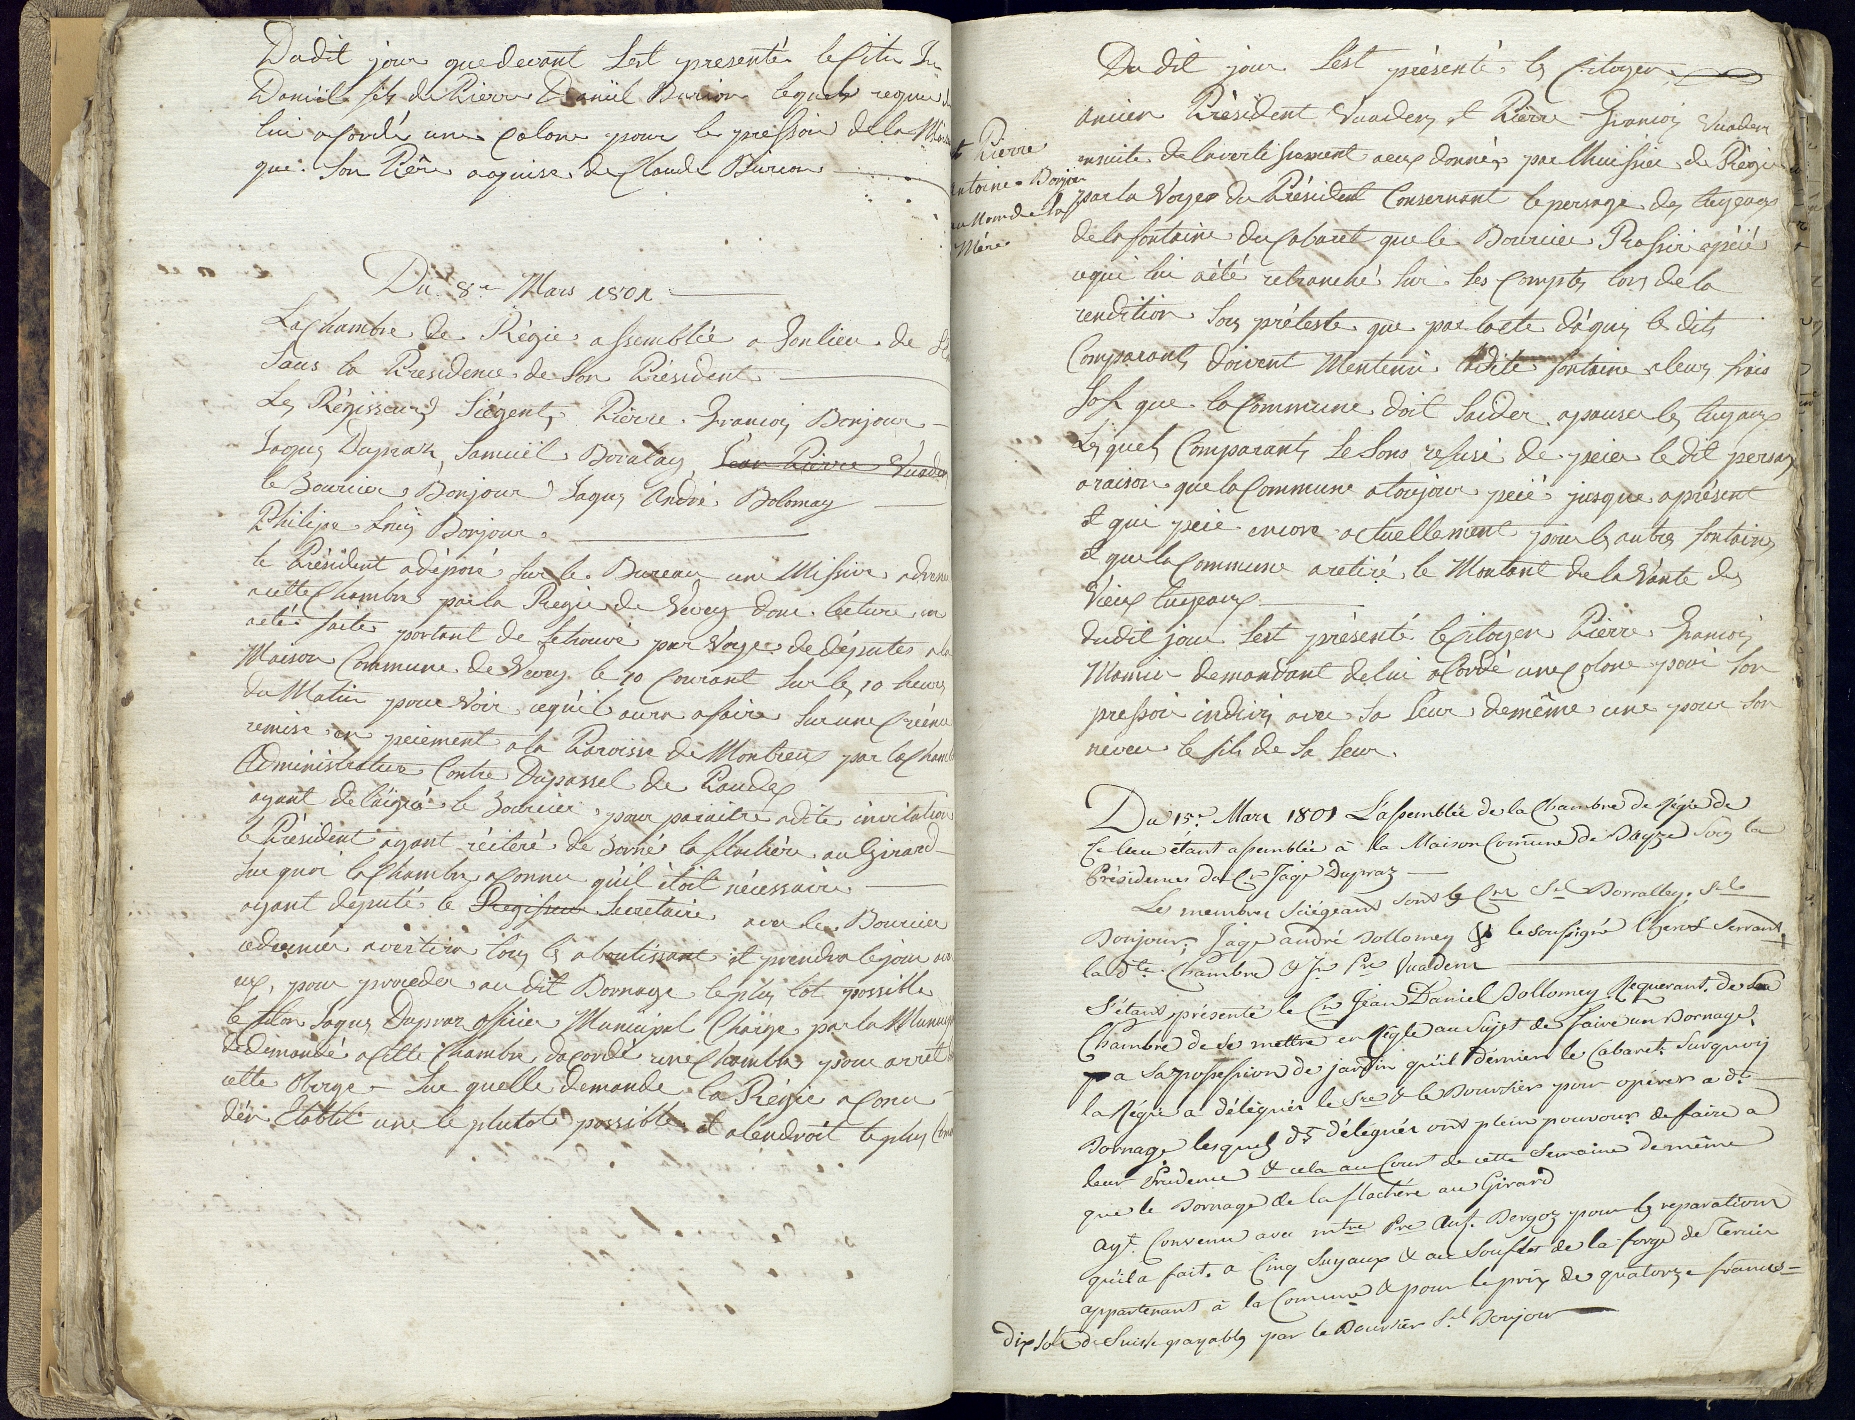 Dudit jour que devant s'est presenté le Citn Jn
Daniël fils de Pierre Daniël Burion lequel requier
lui acordé une colone pour le pressoir de la
que Son Père aquise de Claude Burion
Du 8e Mars 1801
La Chambre de Régie assemblée a Son lieu de
Sous la Présidence de Son Président
Les Régisseurs Siégents Pierre François Bonjour
Jaques Dupraz, Samuël Boralay, Jean Pierre Vuaden
le Bourcier Bonjour Jaques André Bolomay
Philipe Louis Bonjour.
le Président a déposé sur le Bureau une Missive adress
a cette Chambre par la Regie de Vevey donc lecture en
a été faite portant de se trouvé par voye de députés a la
Maison Commune de Vevey le 10 Courant sur les 10 heures
du Matin pour voir ce qu'il aura a faire sur une Créence
remise en peiement a la Paroisse de Montreux par la Chamb
Administrative Contre Dupassel de Paudex
ayant délégué le Bourcier pour paraitre a dite invitation
le Président ayant réiteré de borné la flachère au Girard
sur quoi la Chambre a connu qu'il étoit nécessaire
ayant député le Regisseur Secretaire avec le Bourcier
ce dernier avertira tous les aboutissant et prendra le jour avec
eux, pour proceder au dit Bornage le plus tot possible
le Citon Jaques Dupraz officier Municipal Chargé par la Municip
de demandé a cette Chambre d'acordé une Chambre pour arrêt
cette Oberge - sur quelle demande la Régie a conu
d'en Etablit une le plutoté possible et a l'endroit le plus
Du dit jour s'est présenté les Citoyen
ancien Président Vuaden et Pierre François Vuaden
et Pierre
Antoine Bonjour
au Nom de la
Mère
ensuite de l'avertissement a eux donné par l'huissier de Régie
par la voye du Président Consernant le persage des tuyeaux
de la fontaine du Cabaret que le Bourcier Prossir a péié
ce qui lui a été retranché sur ses Comptes lors de la
rendition sous préteste que par l'acte d'aquis les dits
Comparants doivent Mentenir ladite fontaine a leurs frais
Sof que la Commune doit s'aider a pauser les tuyaux
Lesquels Comparants se sons refusé de peier le dit persage
a raison que la Commune a toujour peié jusque a présent
et qui peié encore actuellement pour les autres fontaines
et que la Commune a retiré le Montant de la Vante des
Vieux tuyeaux
dudit jour s'est présenté le Citoyen Pierre François
Mamin demandant de lui acordé une colone pour son
pressoir indivis avec Sa Seur de même une pour Son
neveu le fils de Sa Seur.
Du 15e Mars 1801 L'assemblée de la Chambre de régie de
Ce lieu étant assemblée à la Maison Comune de Blayre sous la
Présidence du Cn Jaqe Dupraz
Les membres Sciégeans sont les Cns Sl Borralley, Sl
Bonjour, Jaqe andré Bollomey & le soussigné Cherix Servant
la dte Chambre & Jn Pre Vuadens
S'étant présenté le Cn Jean Daniel Bollomey Requerant de la
Chambre de se mettre en règle au Sujet de faire un Bornage,
a Sa possession de jardin qu'il dernier le Cabaret. Surquoy
la Régie a délégués le Sre & le Boursier pour opérer a dt
Bornage lesquels dts délégués ont plein pouvours de faire a
leur Prudence & cela au Court de cette Semaine de même
que le Bornage de la flachère au Girard
Ayt Convenu avec mtre Pre Ant. Dergoz pour les reparations
qu'il a fait a Cinq Tuyaux & au Soufflet de la forge de Terrir
appartenant à la Comune & pour le prix de quatorze francs
dix sols de Suisse payables par le Boursier Sl Bonjour